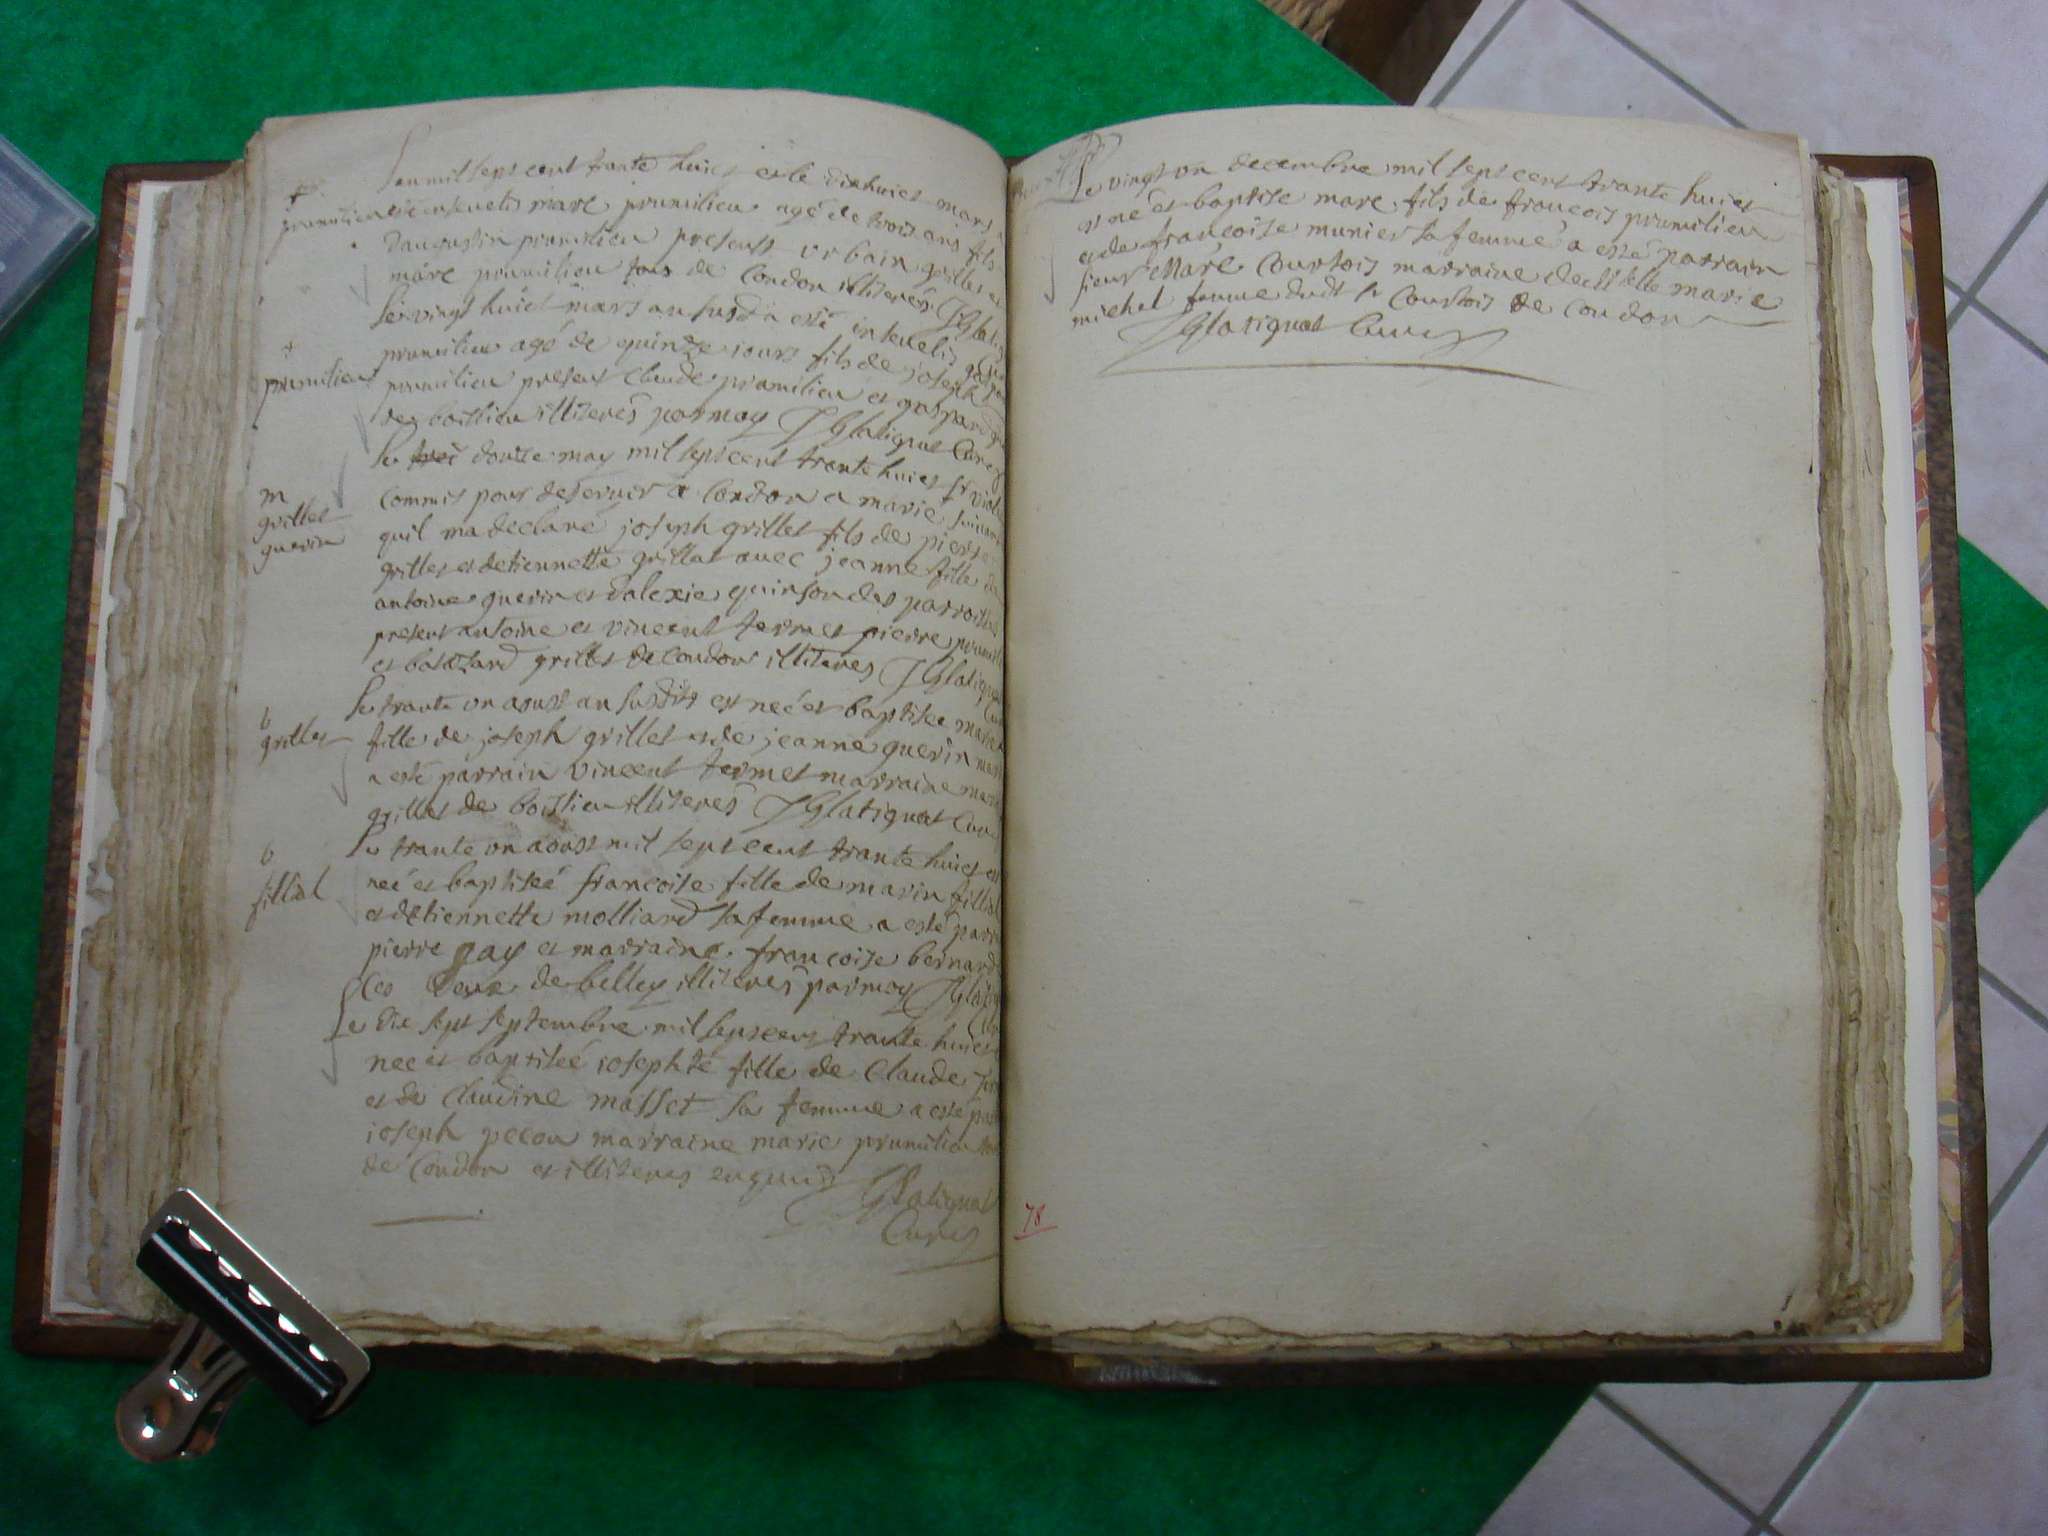 Lan mil sept cent trante huict et le dix huict mars a
+
prumilieu
esté ensevelis marc prumilieu agé de trois ans fils
daugustin prumilieu presents urbain grillet et
marc prumilieu tous de Condon illiterés JGlatig
Le vingt huict mars an susd a esté intevelis
+
prumilieu
prumilieu agé de quinze jours fils de joseph
prumilieu present Claude prumilieu et gaspard
de boissieu illiterés par moy JGlatignat Curez
Le douze may mil sept cent trante huict sr
m
grillet
guerin
commis pour deservir a Condon a marié suivant
quil ma declaré joseph grillet fils de pierre
grillet et detiennette grillat avec jeanne fille de
antoine guerin et dalexie quinson des parroisses
present antoine et vincent termet pierre prumili
et baltzard grillet de Condon illiteres JGlatignat
Cur
Le trante un aoust an susdits est neé et baptisee marie
b
grillet
fille de joseph grillet et de jeanne guerin
a esté parrain vincent termet marraine marie
grillet de boissieu illiterés JGlatignat Curé
Le trante un aoust mil sept cent trante huict est
b
fillial
neé et baptiseé francoise fille de marin fillial
et detiennette molliard sa femme a esté parr
pierre gay et marraine francoise bernard
les deux de belley illiterés par moy JGlatign
Le dix sept septembre mil sept cent trante huict
nee et baptiseé josephté fille de Claude
et de Claudine masset sa femme a esté parr
joseph pecou marraine marie prumilieu
de Condon et illiteres enquis
JGlatignat
Curez
Le vingt un decembre mil sept cent trante huict
est né et baptise marc fils de francois prumilieu
et de francoise munier sa femme a esté parrain
sieur Marc Courtois marraine decelle marie
michel femme dudt sr Courtois de Condon
JGlatignat Curez
78